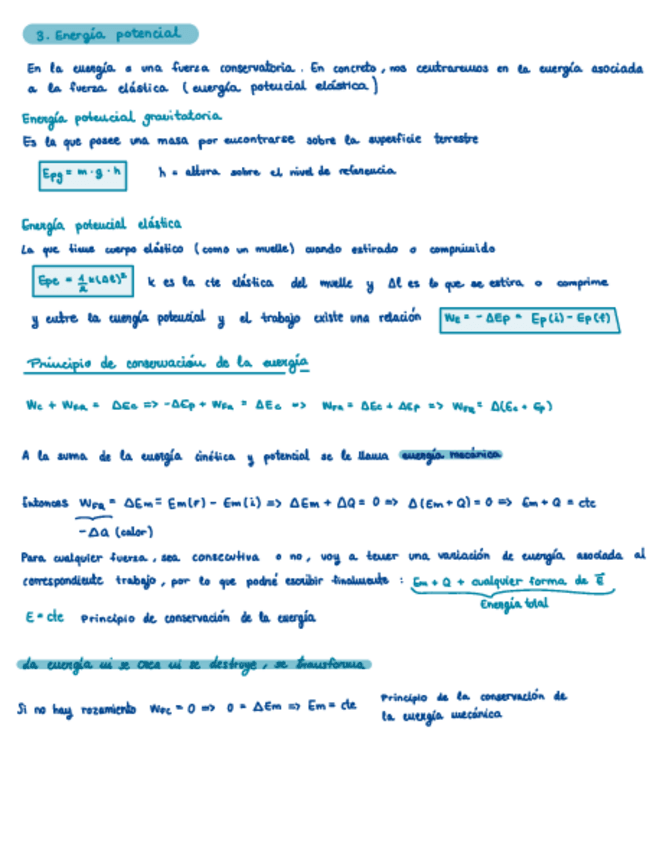 3. Energía potencial
En la energía a una fuerza conservatoria. En concreto, nos centraremos en la energía asociada
a la fuerza elástica (energía potencial elástica)
Energía potencial gravitatoria
Es la que posee una masa por encontrarse sobre la superficie terrestre
Epg = m · g · h h = altura sobre el nivel de referencia
Energía potencial elástica
La que tiene cuerpo elástico (como un muelle) cuando estirado o comprimido
Epe = 1/2 k(Δl)² k es la cte elástica del muelle y Δl es lo que se estira o comprime
y entre la energía potencial y el trabajo existe una relación Wc = - ΔEp = Ep(i) - Ep(f)
Principio de conservación de la energía
Wc + WFR = ΔEc => -ΔEp + WFR = ΔEc => WFR = ΔEc + ΔEp => WFR = Δ(Ec + Ep)
A la suma de la energía cinética y potencial se le llama energía mecánica
Entonces WFR = ΔEm = Em(f) - Em(i) => ΔEm + ΔQ = 0 => Δ(Em + Q) = 0 => Em + Q = cte
-ΔQ (calor)
Para cualquier fuerza, sea consecutiva o no, voy a tener una variación de energía asociada al
correspondiente trabajo, por lo que podré escribir finalmente : Em + Q + cualquier forma de E
Energía total
E = cte Principio de conservación de la energía
La energía ni se crea ni se destruye, se transforma
Si no hay rozamiento => 0 = ΔEm => Em = cte Principio de la conservación de
la energía mecánica